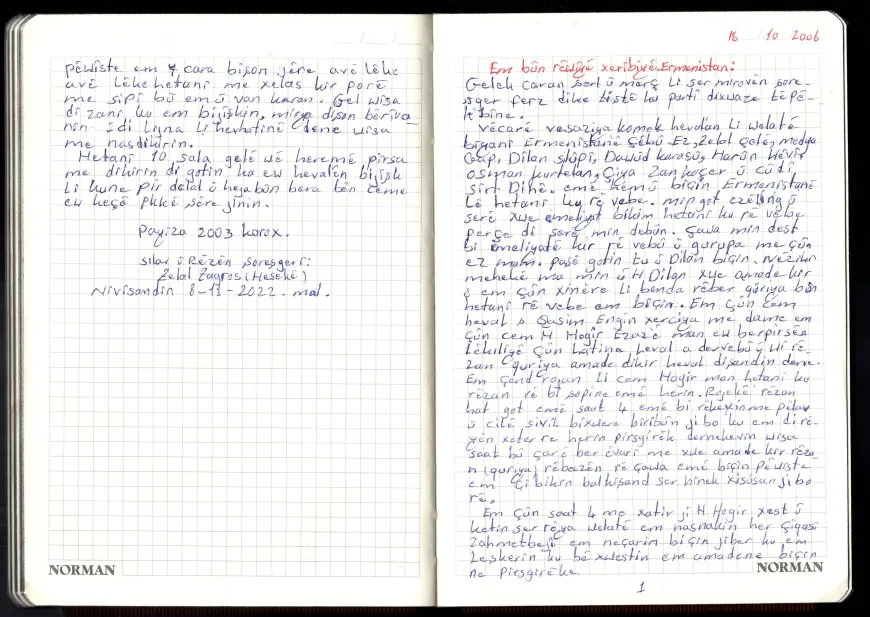 pêwîste em 4 cara bişon jêre avê lêke
avê lêke hetanî me xelas kir porê
me sipî bû em û van karan. Gel wisa
di zanî ku em bijîşkin, mirya dişon bêriva-
nin ûdi ligna li hevhatinê dene wisa
me nasdikirin.
Hetanî 10 sala gelê wê heremê pirsa
me dikirin di gotin ka ew hevalên bijîşk
li kune pir delal û heja bûn bera bên ceme
ew keçê Pkkê şêre jinin.
Payiza 2003 korox.
silav û Rêzên şoreşgerî:
Zelal Zagros (Hesekê)
Nivîsandin 8-11-2022 - mal.
NORMAN
18 10 2006
Em bûn rêwîyê xerîbiyê. Ermenistan:
Gelek caran şert û merç li ser mirovên şore-
şger ferz dike tiştê ku partî dixwaze têpê-
kêbîne.
Vêcarê veşaziya komek hevalan li welatê
bîyanî Ermenistanê çêbû. Ez, Zelal çelê, medya
Gap, Dilan slopî, Dawûd karasû, Harûn Hêvî,
osman kurtelan, Çiya Zankoçer û cûdî,
sîrt Dihê. emê hemû biçin Ermenistanê
Lê hetanî ku rê vebe. min got ezêling û
serê xwe emeliyat bikim hetanî ku rê vebe
perçe di serê min debûn. Çawa min dest
bi emeliyatê kir rê vebû û gurupa me çûn
ez mam. Paşê gotin tu û Dilan biçin. Nêzîkî
mehekê ma min û H Dilan xwe amade kir
û em çûn xinêre li benda rêber quriya bûn
hetanî rê vebe em biçin. Em çûn cem
heval Qasim Engin xerciya me dame em
çûn cem H Hogir Ezazê man ew berpirsên
lêkolîyê çûn hatina heval a devvebû û wî rê-
zan quriya amade dikir heval dişandin dene.
Em çend rojan li cem Hogir man hetanî ku
rêzan rê bi şopîne emê herin. Rojekê rêzan
hat got emê saat 4 emê bi rêkevin me pêlav
û cilê sivîl bixwere biribûn ji bo ku em di rê-
yên xeter re herin pirsgirêk dernekevin wisa
saat bû çarê ber êvarî me xwe amade kir rêza-
n (quriya) rêbazên rê çawa emê biçin pêwiste
em çi bikin balkişand ser hinek xisûsan ji bo
rê.
Em çûn saat 4 me xatir ji H Hogir xast û
ketin ser rêya welatê em nasnakin her çiqasî
zahmetbejî em neçarin biçin jiber ku em
Leşkerin ku bê xwestin em amadene biçin
ne pirsgirêke
NORMAN
1